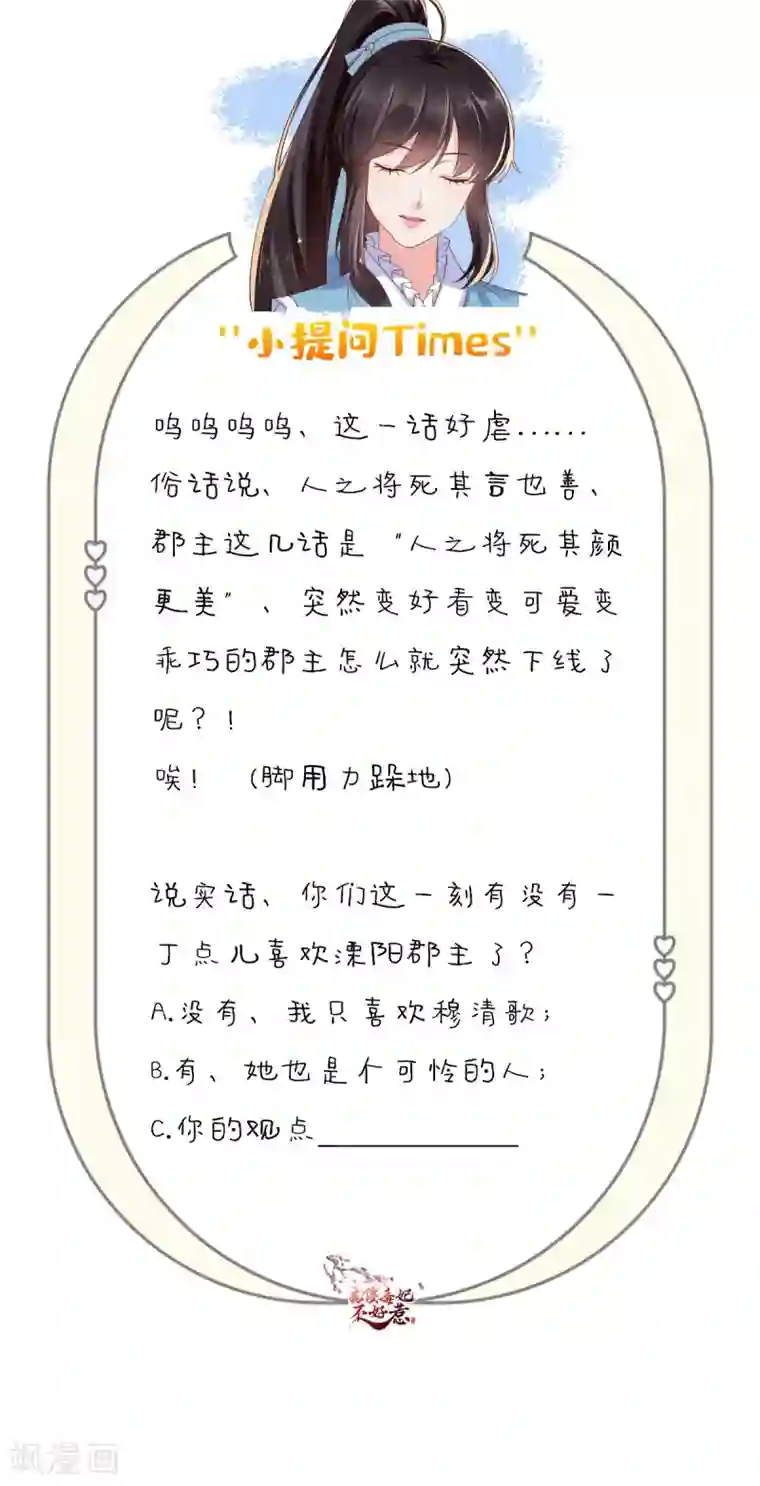 "小提问Times"
呜呜呜呜、这一话好虐……
俗话说、人之将死其言也善、
郡主这几话是“人之将死其颜
更美”、突然变好看变可爱变
乖巧的郡主怎么就突然下线了
呢？！
唉！（脚用力跺地）
说实话、你们这一刻有没有一
丁点儿喜欢溧阳郡主了？
A.没有、我只喜欢穆清歌；
B.有、她也是个可怜的人；
C.你的观点
毒妃
不好惹
飒漫画